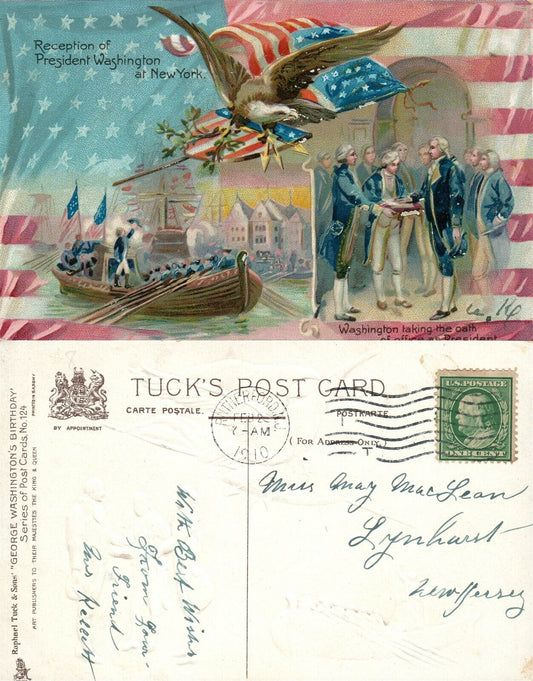 Reception of
President Washington
at New York.
Washington taking the oath
of office as President
TUCK'S POST CARD
CARTE POSTALE.
POSTKARTE.
(FOR ADDRESS ONLY.)
BY APPOINTMENT
RUTHERFORD, N.J.
FEB 2
7-AM
1910
U.S. POSTAGE
ONE CENT
Miss May MacLean
Lynhurst
New Jersey
With Best Wishes
From Your
Friend
Raphael Tuck & Sons' "GEORGE WASHINGTON'S BIRTHDAY"
Series of Post Cards, No. 124
ART PUBLISHERS TO THEIR MAJESTIES THE KING & QUEEN
PRINTED IN SAXONY